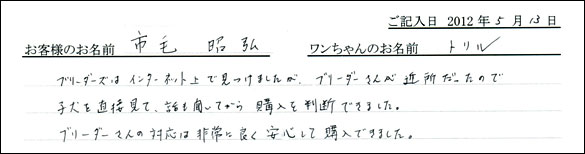 ご記入日 2012年5月13日
お客様のお名前 市毛 昭弘 ワンちゃんのお名前 トリル
ブリーダーズはインターネット上で見つけましたが、ブリーダーさんが近所だったので
子犬を直接見て、話も聞いてから購入を判断できました。
ブリーダーさんの対応は非常に良く安心して購入できました。